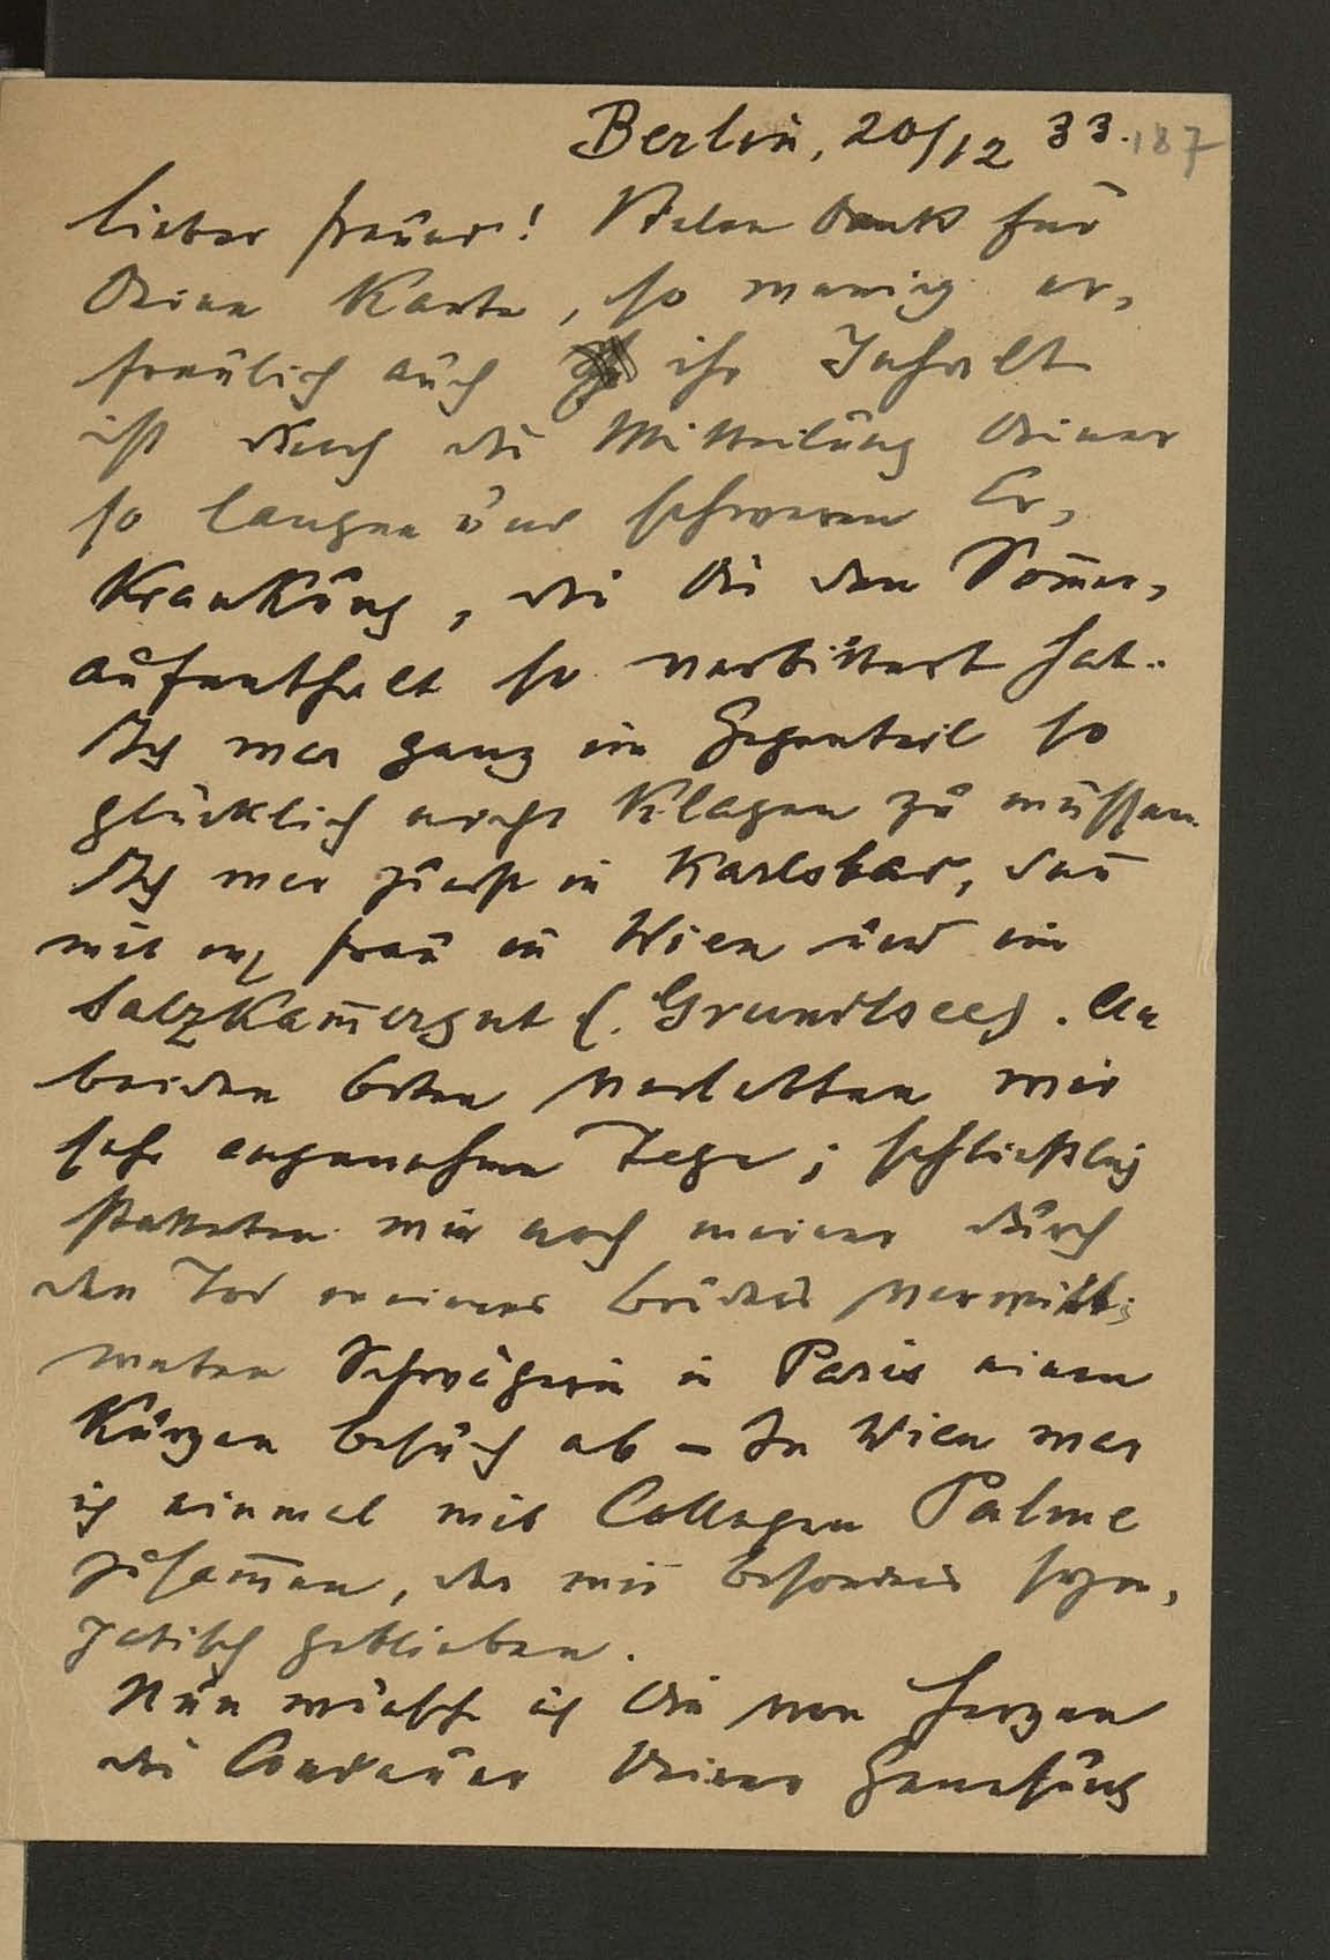 Berlin, 20/12 33. 187
Lieber Freund! Vielen Dank für
Deine Karte, so wenig er-
freulich auch ihr Inhalt
ist durch die Mitteilung Deiner
so langen und schweren Er-
krankung, die Dir den Som̅er-
aufenthalt so verbittert hat.
Ich war ganz im Gegenteil so
glücklich nicht klagen zu müssen.
Ich war zuerst in Karlsbad, dan̅
mit m/ Frau in Wien und im
Salzkam̅ergut (Grundlsee). An
beiden Orten verlebten wir
sehr angenehme Tage; schließlich
statteten wir noch meiner durch
den Tod meines Bruders verwitt-
weten Schwägerin in Paris einen
kurzen Besuch ab – In Wien war
ich einmal mit Collegen Palme
zusam̅en, der mir besonders sym-
patisch geblieben.
Nun wünsche ich Dir von Herzen
die Andauer Deiner Genesung